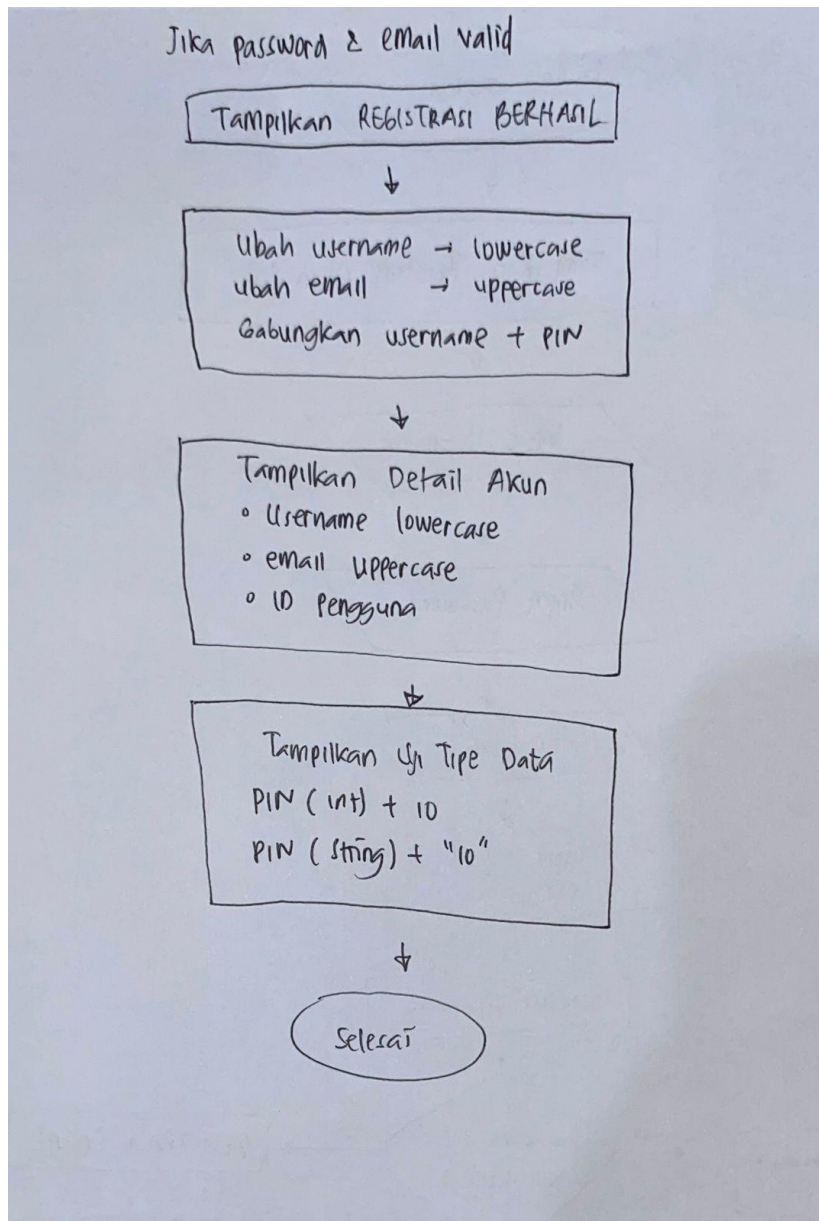 Jika password & email valid
Tampilkan REGISTRASI BERHASIL
Ubah username → lowercase
ubah email → uppercase
Gabungkan username + PIN
Tampilkan Detail Akun
• Username lowercase
• email uppercase
• ID Pengguna
Tampilkan Uji Tipe Data
PIN (int) + 10
PIN (string) + "10"
Selesai